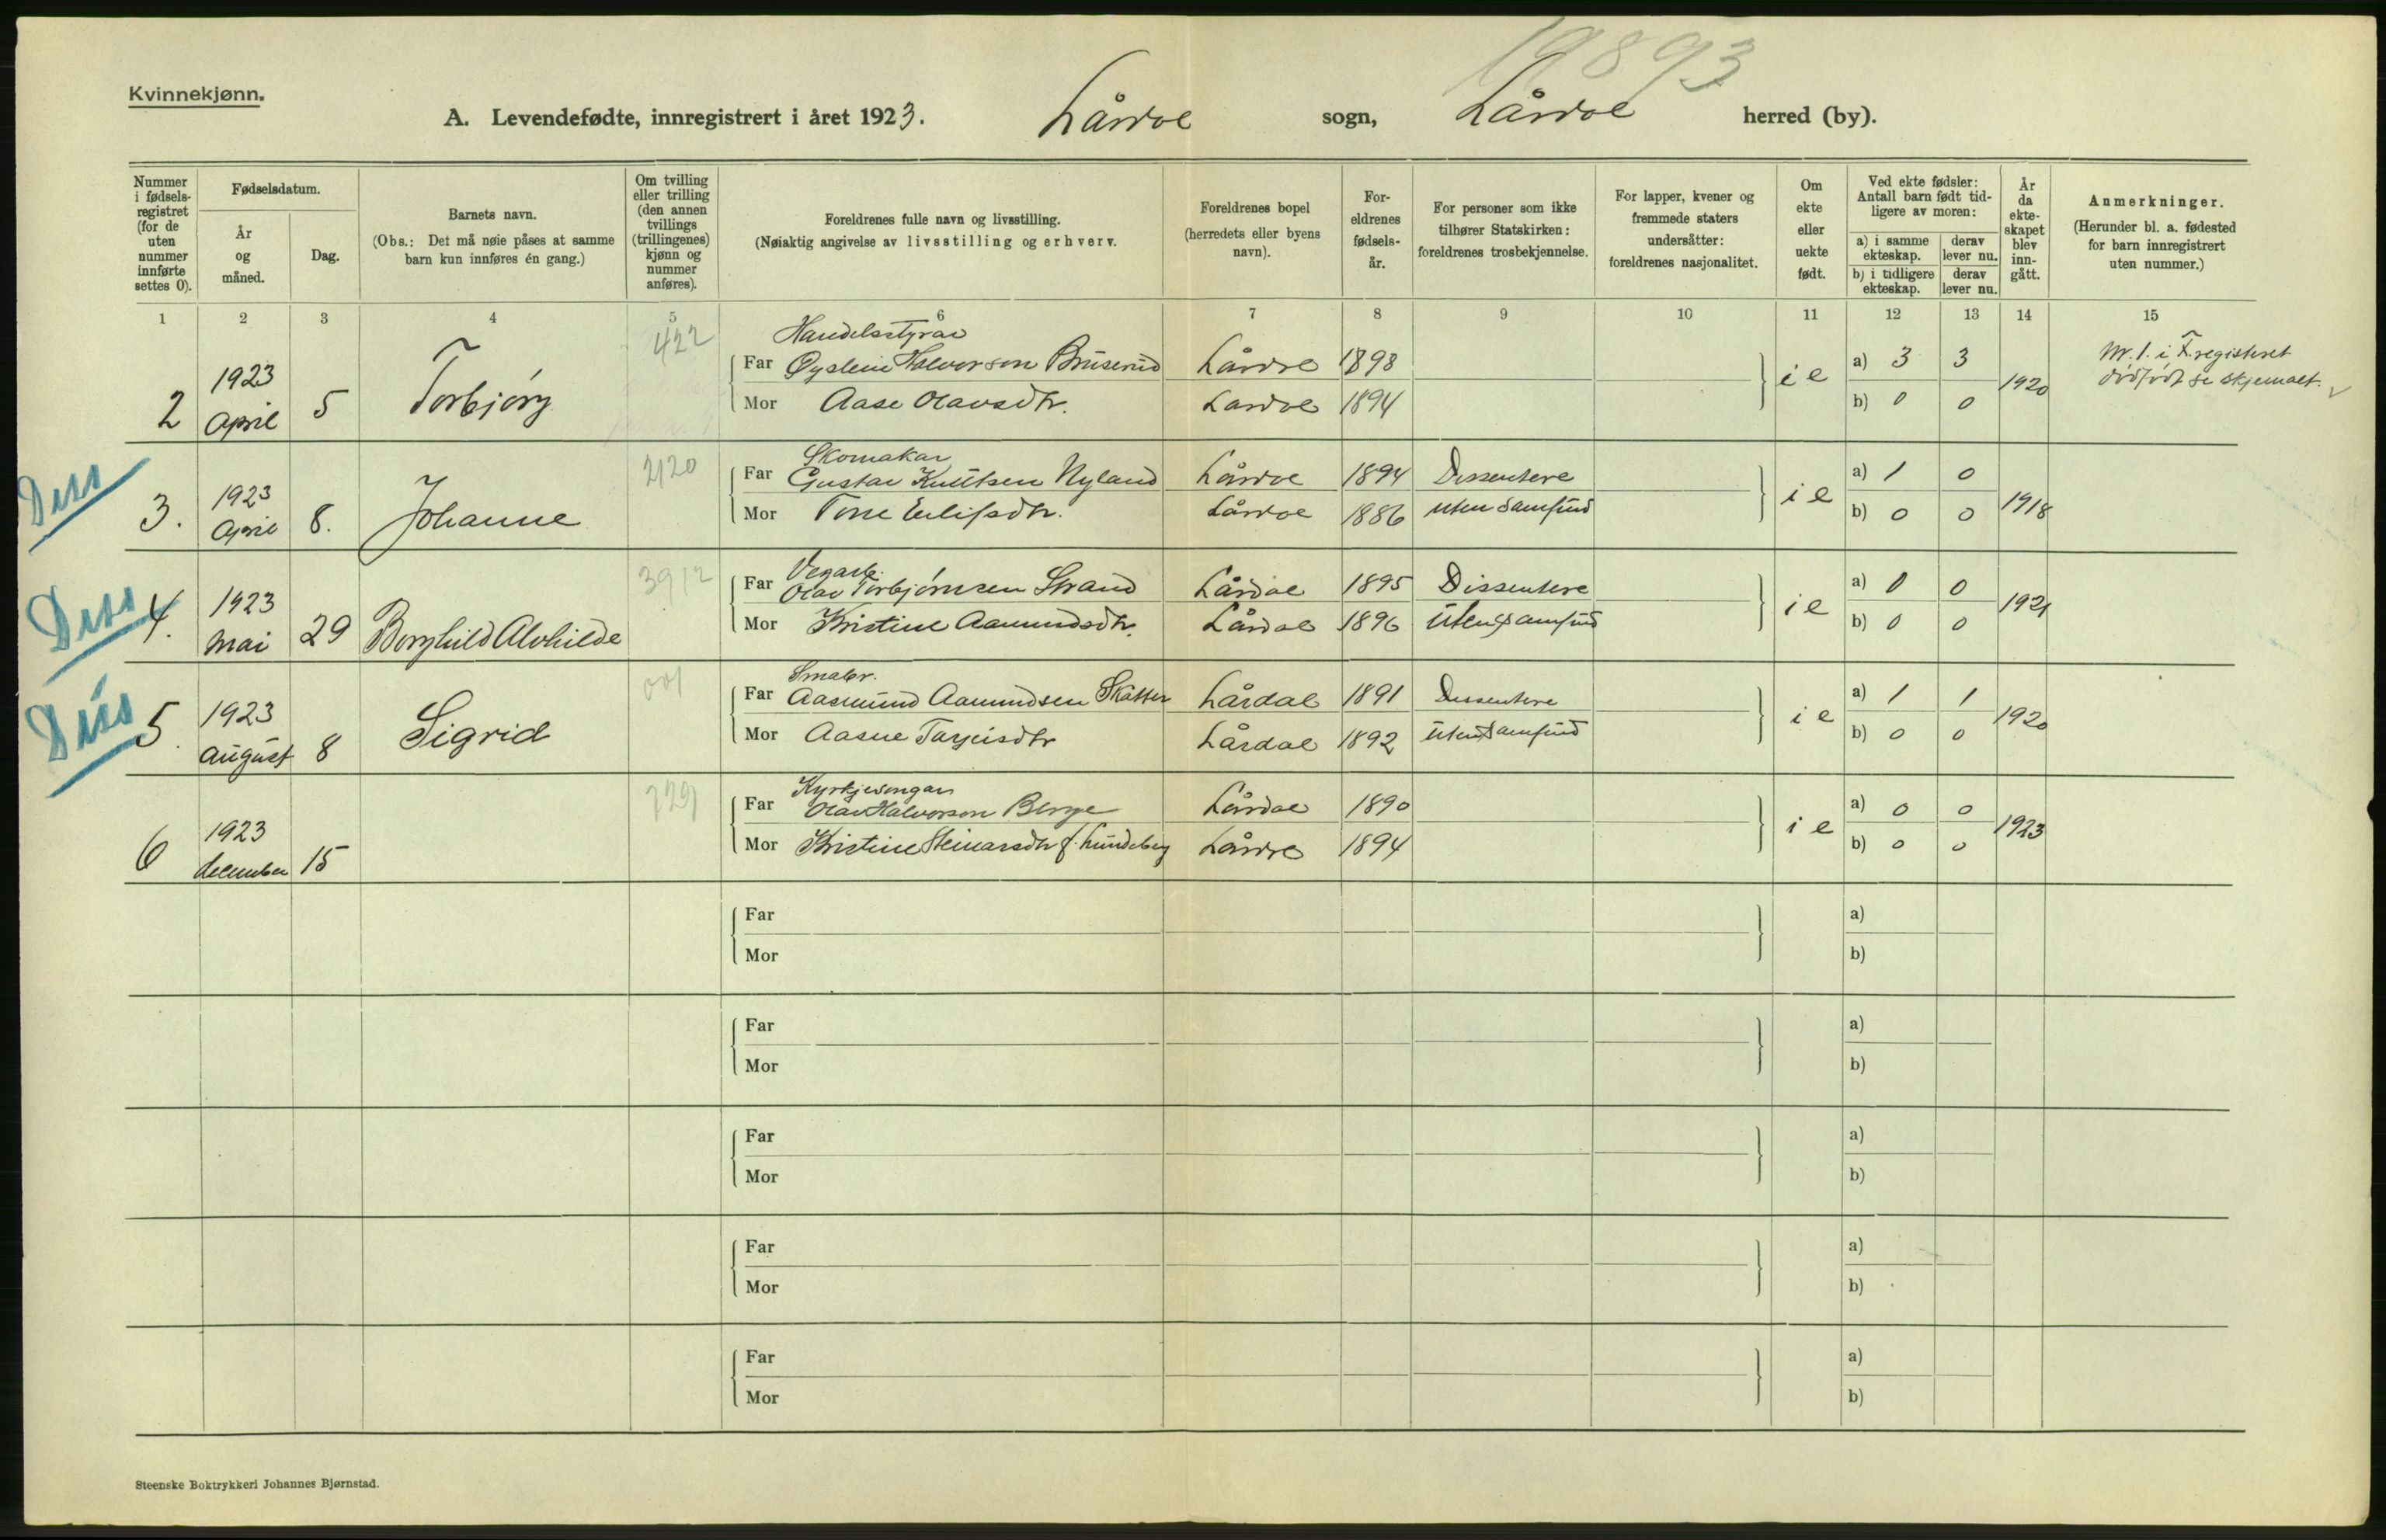 19893
Kvinnekjønn.
A. Levendefødte, innregistrert i året 1923. Lårdal sogn, Lårdal herred (by).
Nummer i fødselsregistret (for de uten nummer innførte settes 0).
Fødselsdatum.
År og måned.
Dag.
Barnets navn.
(Obs.: Det må nøie påses at samme barn kun innføres én gang.)
Om tvilling eller trilling (den annen tvillings (trillingenes) kjønn og nummer anføres).
Foreldrenes fulle navn og livsstilling.
(Nøiaktig angivelse av livsstilling og erhverv.
Foreldrenes bopel (herredets eller byens navn).
Foreldrenes fødselsår.
For personer som ikke tilhører Statskirken: foreldrenes trosbekjennelse.
For lapper, kvener og fremmede staters undersåtter: foreldrenes nasjonalitet.
Om ekte eller uekte født.
Ved ekte fødsler: Antall barn født tidligere av moren:
a) i samme ekteskap.
derav lever nu.
b) i tidligere ekteskap.
derav lever nu.
År da ekteskapet blev inngått.
Anmerkninger.
(Herunder bl. a. fødested for barn innregistrert uten nummer.)
1 2 3 4 5 6 7 8 9 10 11 12 13 14 15
2 1923 April 5 Torbjörg 422
Handelsstyrar
Far Øystein Halvorson Bruserud Lårdal 1898 i e a) 3 3 1920
Mor Aase Olavsdtr. Lardal 1894 b) 0 0
Nr. 1. i F.registeret
dödfödt se skjemaet.
Diss
3. 1923 April 8. Johanne 2120
Skomakar
Far Gustav Knutsen Nyland Lårdal 1894 Dissentere i e a) 1 0 1918
Mor Tone Eilifsdtr. Lårdal 1886 uten samfund b) 0 0
Diss
4. 1923 Mai 29 Borghild Alvhilde 3912
Vegarb.
Far Olav Torbjörnsen Strand Lårdal 1895 Dissentere i e a) 0 0 1921
Mor Kristine Aamundsdtr. Lårdal 1896 uten samfund b) 0 0
Diss
5. 1923 August 8 Sigrid 001
Smabr.
Far Aasmund Aamundsen Skatter Lårdal 1891 Dissentere i e a) 1 1 1920
Mor Aasne Tarjeisdtr Lårdal 1892 uten samfund b) 0 0
6 1923 december 15 729
Kyrkjesongar
Far Olav Halvorson Berge Lårdal 1890 i e a) 0 0 1923
Mor Kristine Steinarsdtr f. Lundeberg Lårdal 1894 b) 0 0
Far a)
Mor b)
Far a)
Mor b)
Far a)
Mor b)
Far a)
Mor b)
Far a)
Mor b)
Steenske Boktrykkeri Johannes Bjørnstad.